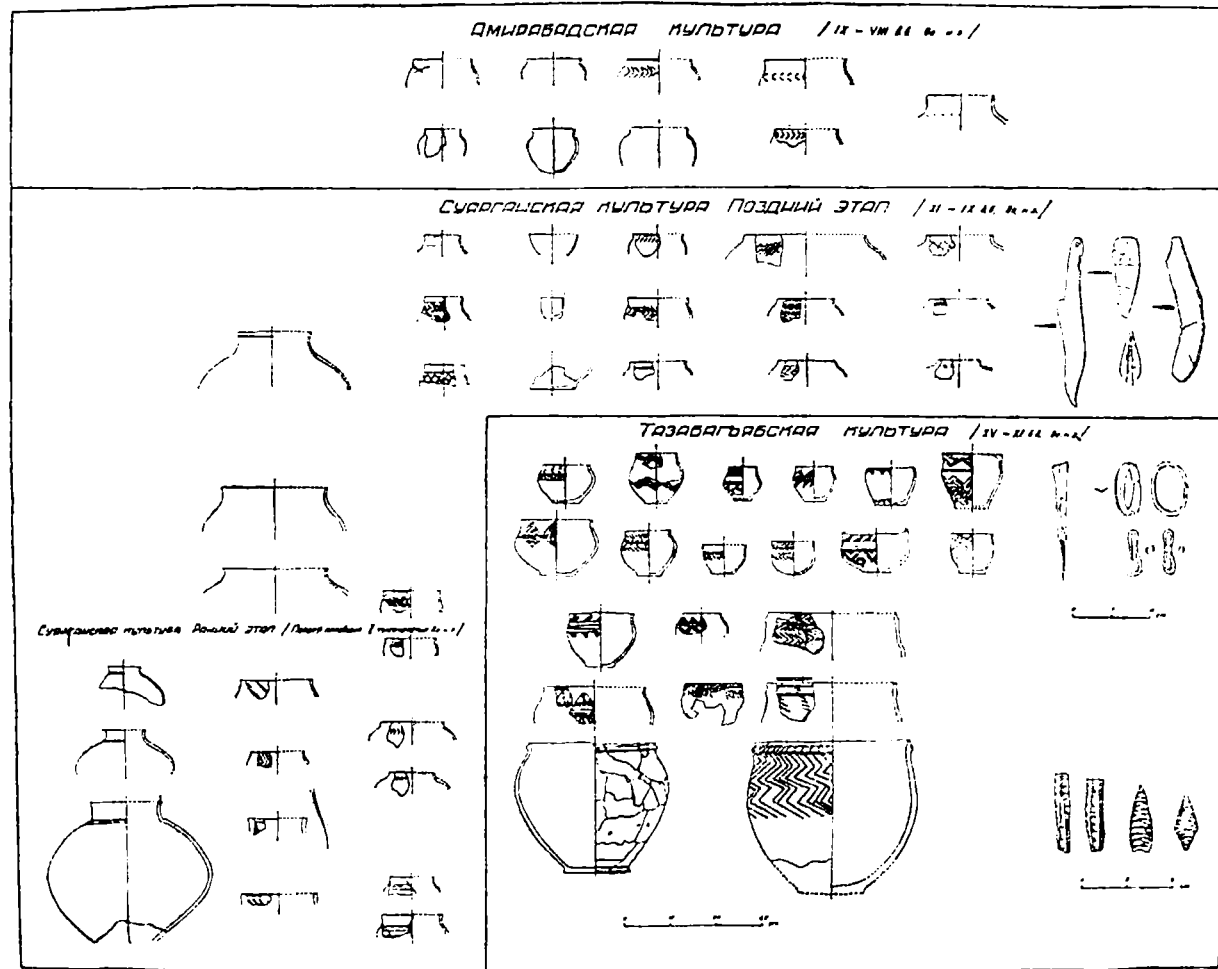 Амирабадская культура /IX – VIII вв. до н.э./
Суярганская культура Поздний этап /XI – IX вв. до н.э./
Тазабагъябская культура /XV – XI вв. до н.э./
Суярганская культура Ранний этап